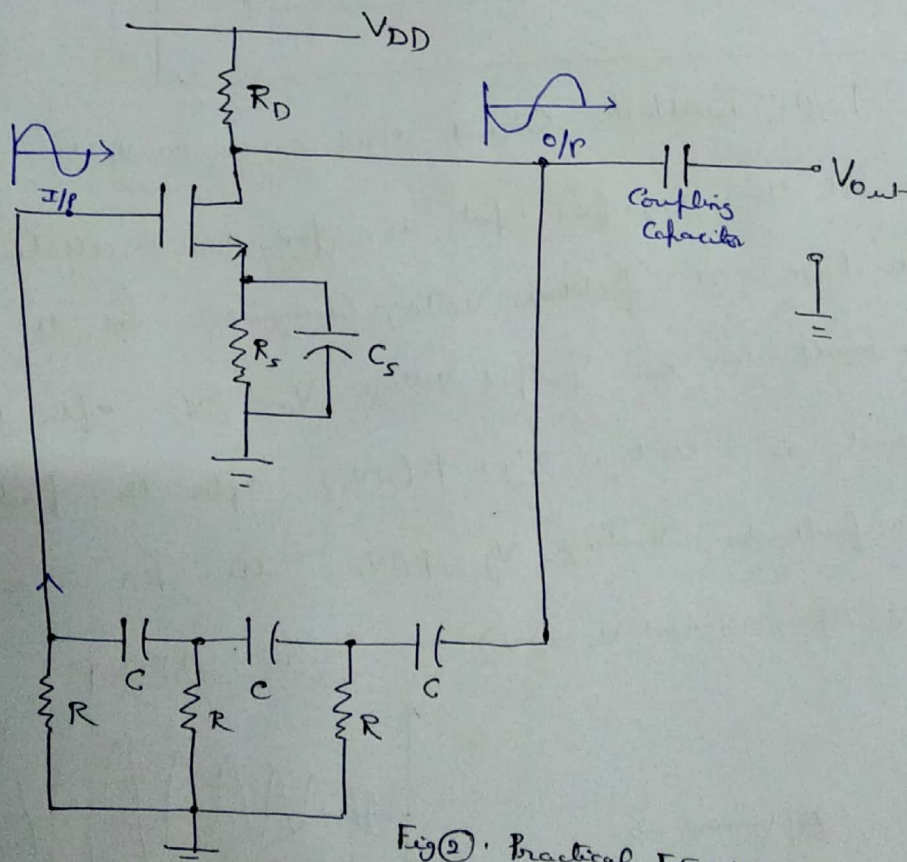 V_DD
R_D
I/P
O/P
Coupling
Capacitor
V_Out
R_s
C_s
C
C
C
R
R
R
Fig ②. Practical